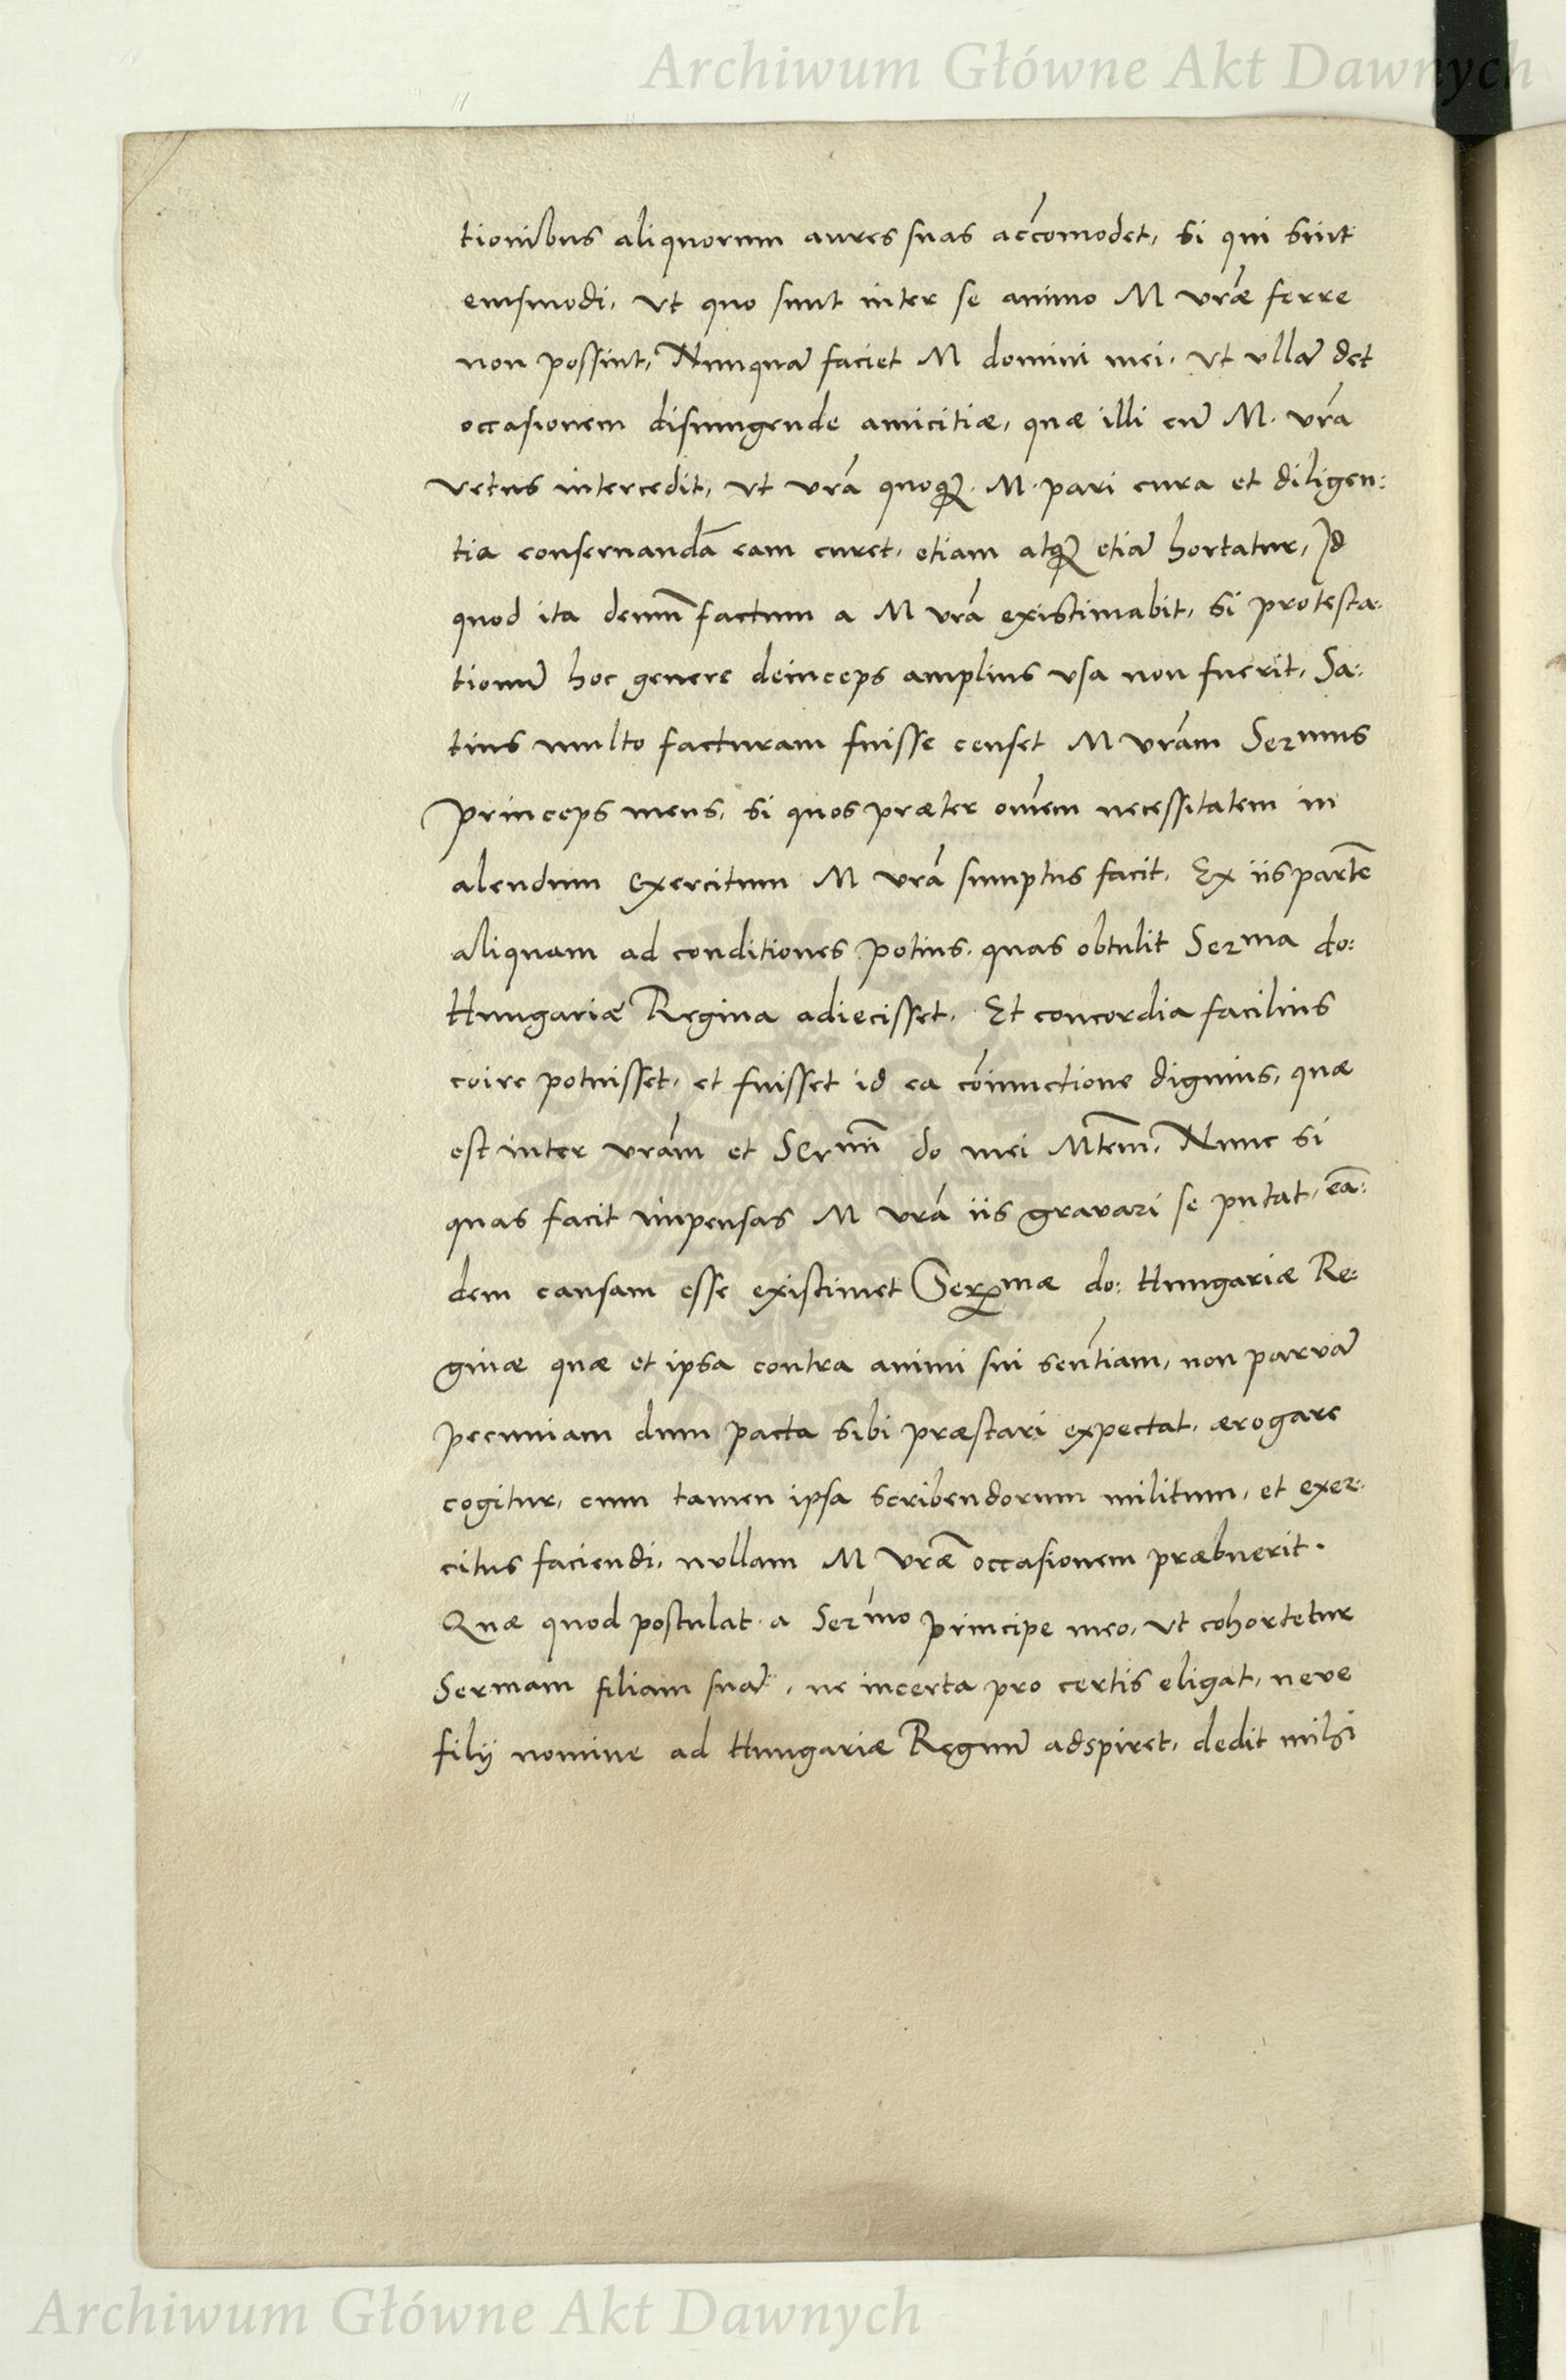 Archiwum Główne Akt Dawnych
tionibus aliquorum aures suas accõmodet, si qui sint
eiusmodi, vt quo sunt inter se animo M vræ ferre
non possint, Nunquã faciet M domini mei, vt vllã det
occasionem disiungende amicitiæ, quæ illi cũ M. vrã
vetus intercedit, vt vrã quoqꝫ M. pari cura et diligen:
tia conseruandã eam curet, etiam atqꝫ etiã hortatur, Id
quod ita demũ factum a M vrã existimabit, si protesta:
tionũ hoc genere deinceps amplius vsa non fuerit, Sa:
tius multo facturam fuisse censet M vrãm Sermus
princeps meus, si quos præter omẽm necessitatem in
alendum exercitum M vrã sumptus facit, Ex iis partẽ
aliquam ad conditiones potius, quas obtulit Serma do:
Hungariæ Regina adiecisset, Et concordia facilius
coire potuisset, et fuisset id ea cõiunctione dignius, quæ
est inter vrãm et Sermĩ do mei Mtẽm, Nunc si
quas facit impensas M vrã iis gravari se putat, eã:
dem causam esse existimet Serꝫmæ do: Hungariæ Re:
ginæ quæ et ipsa contra animi sui sentẽtiam, non parvã
pecuniam dum pacta sibi præstari expectat, ærogare
cogitur, cum tamen ipsa scribendorum militum, et exer:
citus faciendi, nullam M vræ̃ occasionem præbuerit.
Quæ quod postulat a Sermo principe meo, vt cohortetur
Sermam filiam suã, ne incerta pro certis eligat, neve
filij nomine ad Hungariæ Regnũ adspiret, dedit mihi
Archiwum Główne Akt Dawnych